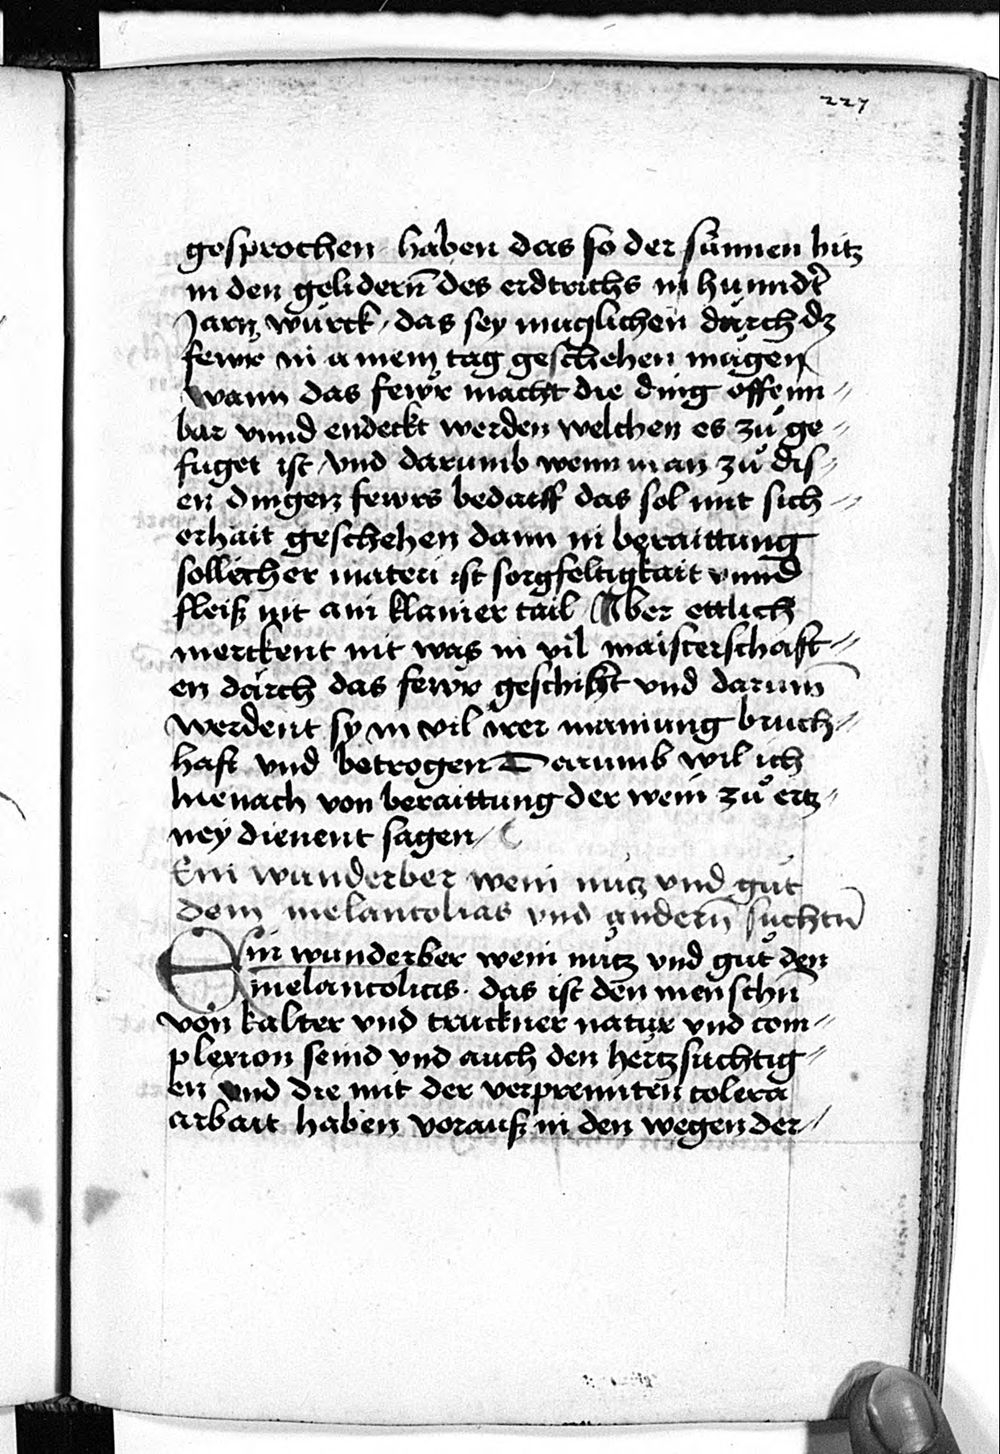 227
gesprochen haben das so der sünnen hitz
in den gelidern̄ des erdtrichs in hunndt͛
Jarn würck / das sey muglichen dürch dz
fewr in ainem tag geschehen mügen
wann das fewr macht die ding offenn⸗
bar vnnd endeckt werden welchen es zů ge⸗
fuget ist / vnd darumb wenn man zů dis⸗
en dingen fewrs bedarff das sol mit sich⸗
erhait geschehen dann in beraittung
sollicher materi ist sorgfeltigkait vnnd
fleiß nit ain klainer tail Aber ettlich
merckent nit was in vil maisterschaft⸗
en dürch das fewr geschiht vnd darum̄
werdent sy in vil irer mainung bruch⸗
haft vnd betrogen Darumb wil ich
hienach von beraittung der wein zů ertz⸗
ney dienent sagen /
Ein wunderber wein nütz vnd güt
dem melancolias vnd andern̄ suchtn̄
Ein wunderber wein nütz vnd gůt den
melancolicis. das ist den menschn̄
von kalter vnd truckner natur vnd com⸗
plexion seind vnd auch den hertzsuchtig⸗
en vnd die mit der verprennten colera
arbait haben vorauß in den wegen der⸗